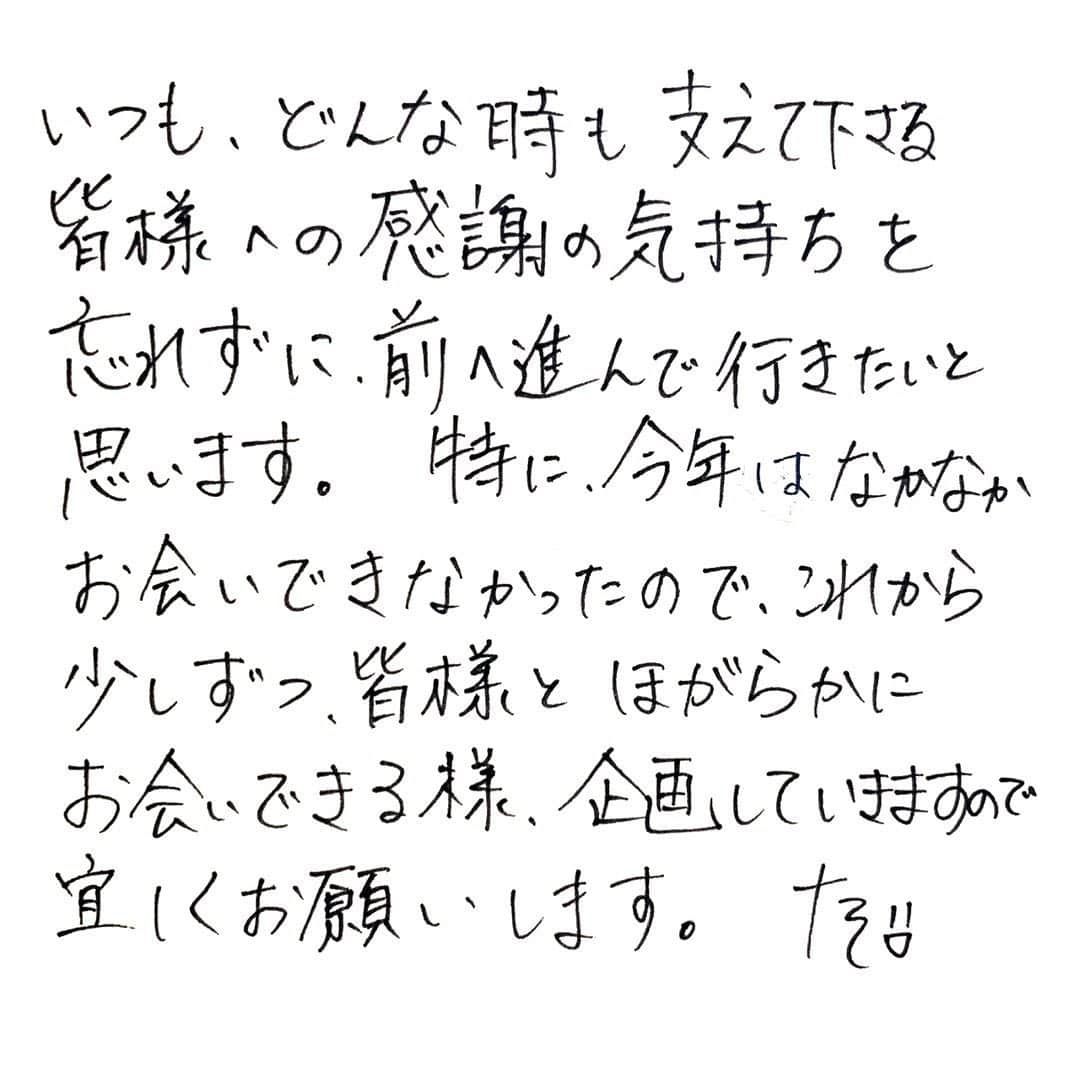 いつも、どんな時も 支えて下さる
皆様への感謝の気持ちを
忘れずに、前へ進んで行きたいと
思います。 特に、今年はなかなか
お会いできなかったので、これから
少しずつ、皆様と ほがらかに
お会いできる様、企画していきますので
宜しくお願いします。